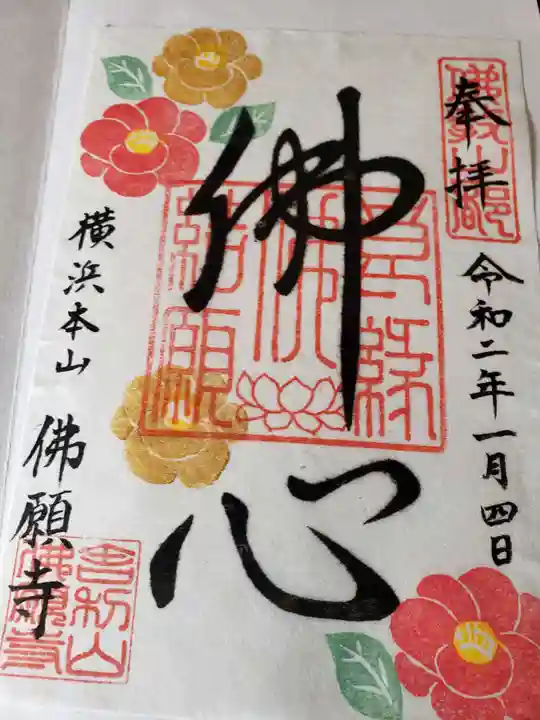 奉拝
令和二年一月四日
佛心
横浜本山
佛願寺